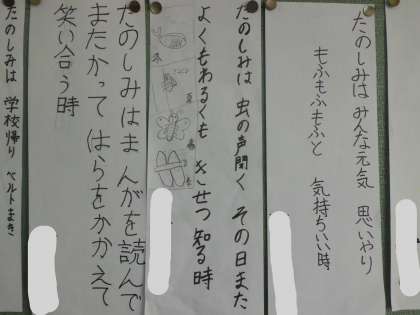 たのしみはみんな元気 思いやり
もふもふもふと 気持ちいい時
たのしみは 虫の声聞く その日また
よくもわるくも きせつ知る時
冬
夏
春
たのしみはまんがを読んで
またかって はらをかかえて
笑い合う時
たのしみは 学校帰り ベルトまき